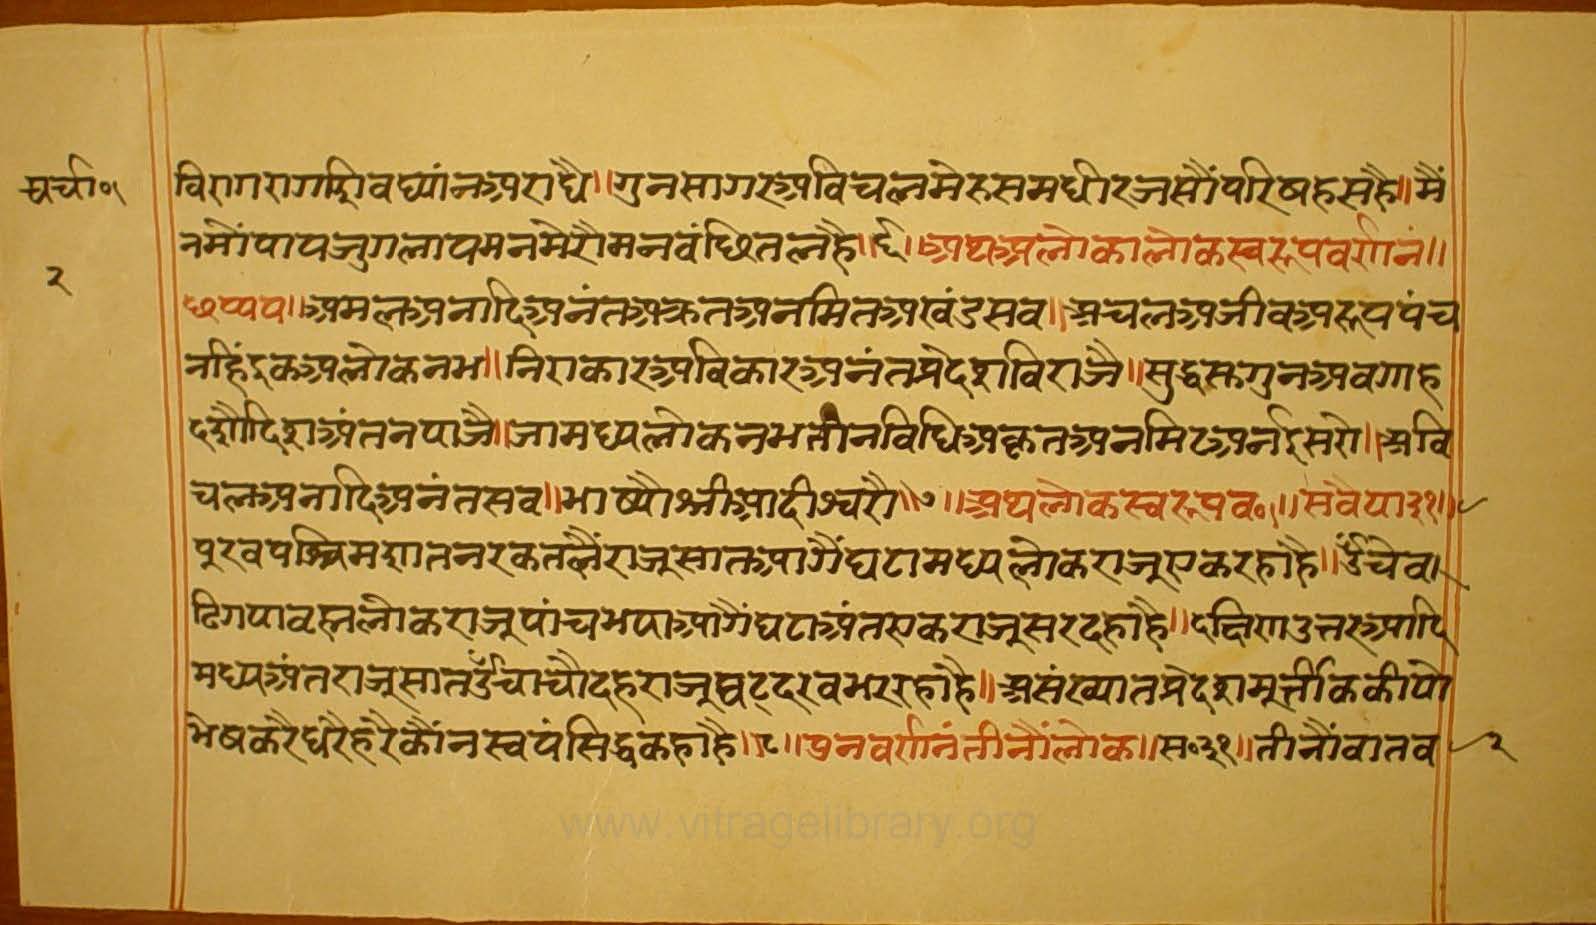 चर्चा०१
२
विरागरागशिवध्यांनअराधै॥गुनसागरअविचलमेरुसमधीरजसौंपरिषहसहै॥मैं
नमोंपायजुगलायमनमेरौमनवंछितलहै॥६॥अथअलोकालोकस्वरूपवर्णनं॥
छप्पय॥अमलअनादिअनंतअक्रतअनमितअखंडसव॥अचलअजीवअरूपपंच
नहिंइकअलोकनभ॥निराकारअविकारअनंतप्रदेशविराजै॥सुद्धसुगुनअवगाह
दशौंदिशाअंतनपाजै॥जामध्यलोकनभतीनविधिअकृतअनमिटअनईसरो॥अवि
चलअनादिअनंतसव॥भाष्यौश्रीआदीश्वरौ॥७॥अथलोकस्वरूपव०॥सवैया३१॥
पूरवपश्चिमशातनरकतलैंराजूसातआगैंघटामध्यलोकराजूएकरहाहै॥ऊंचेव
ढिगयाव्रह्मलोकराजूपांचभयाआगैंघटाअंतएकराजूसरदहाहै॥दक्षिणउत्तरआदि
मध्यअंतराजूसातऊंचाचौदहराजूषटदरवभररहाहै॥असंख्यातप्रदेशमूर्त्तीककीयो
भेषकरैधरैहरैकौंनस्वयंसिद्धकहाहै॥८॥पुनवर्णनंतीनौंलोक॥स०३१॥तीनौंवातव
२
www.vitragelibrary.org